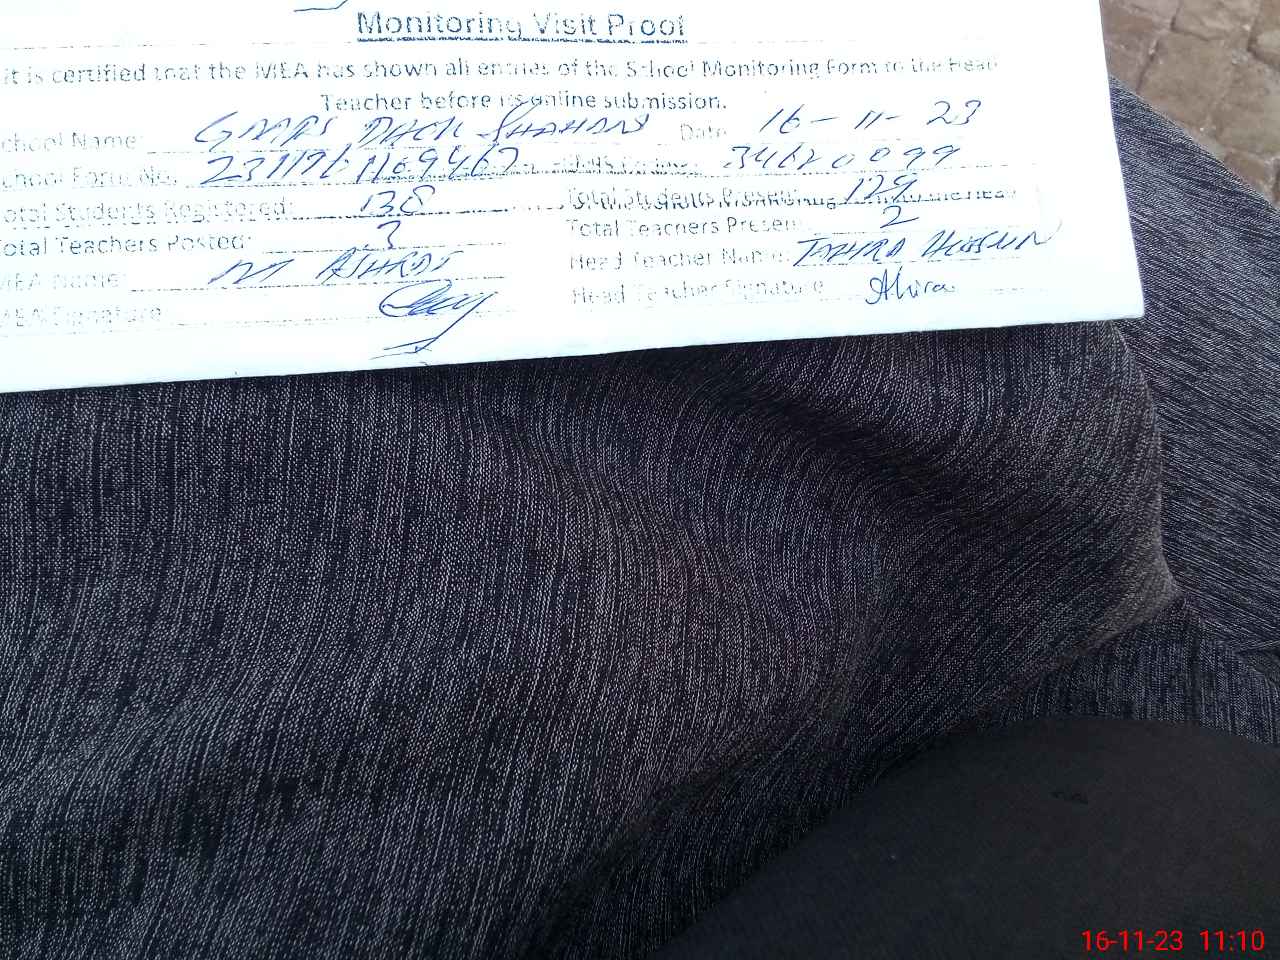 Monitoring Visit Proof
it is certified that the MEA has shown all entries of the School Monitoring Form to the Head
Teacher before its online submission.
chool Name: Shahani Date 16-11-23
chool Form No. 34620099
otal Students Registered: 138 Total Students Present: 129
otal Teachers Posted: 3 Total Teachers Present: 2
MEA Name: M Ashraf Head Teacher Name: Tahira Hussain
MEA Signature Head Teacher Signature Ahira
16-11-23 11:10